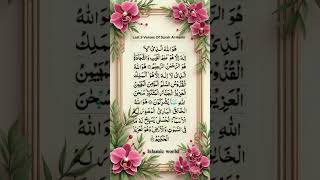 Last 3 Verses Of Surah Al Hashr
هُوَ اللهُ الَّذِي لَا
إِلٰهَ إِلَّا هُوَ عَالِمُ الْغَيْبِ وَالشَّهَادَةِ
هُوَ الرَّحْمٰنُ الرَّحِيمُ هُوَ اللهُ
الَّذِي لَا إِلٰهَ إِلَّا هُوَ الْمَلِكُ
الْقُدُّوسُ السَّلَامُ الْمُؤْمِنُ الْمُهَيْمِنُ
الْعَزِيزُ الْجَبَّارُ الْمُتَكَبِّرُ سُبْحَانَ
اللهِ عَمَّا يُشْرِكُونَ هُوَ اللهُ
الْخَالِقُ الْبَارِئُ الْمُصَوِّرُ لَهُ
الْأَسْمَاءُ الْحُسْنٰى يُسَبِّحُ لَهُ مَا
فِي السَّمٰوَاتِ وَالْأَرْضِ وَهُوَ الْعَزِيزُ
الْحَكِيمُ
Islamic world